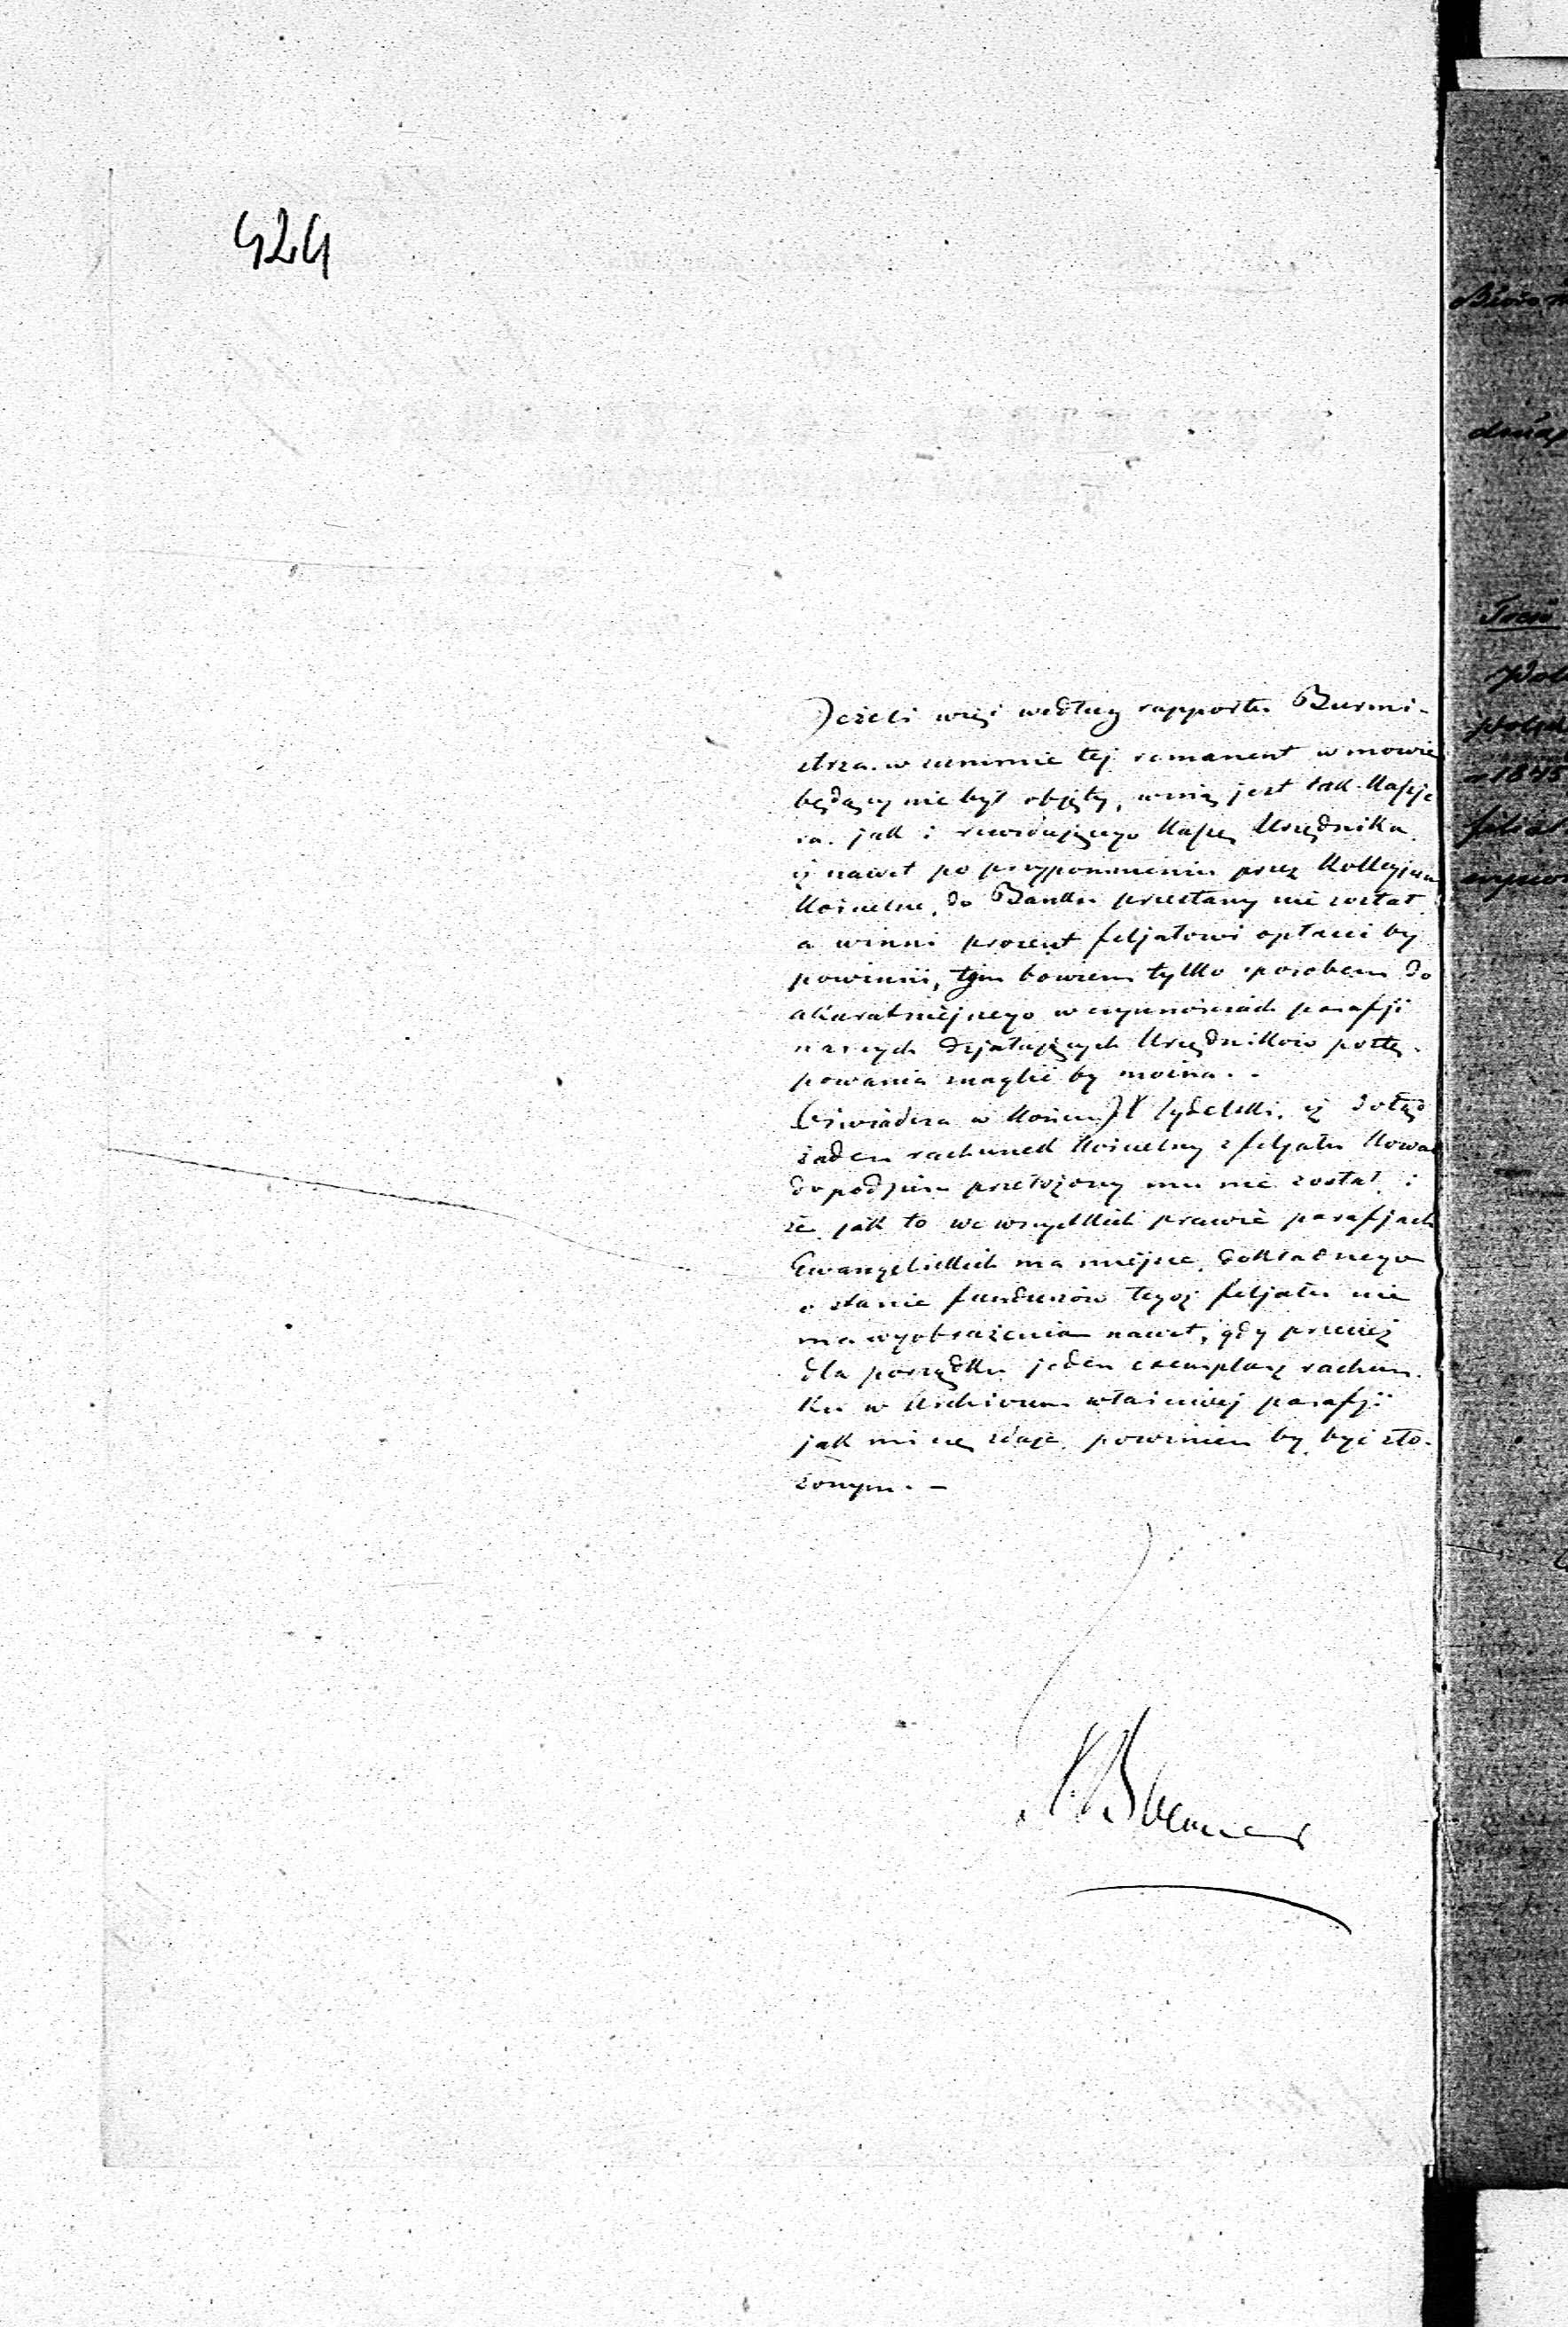 424
Jeżeli więc według rapportu Burmi-
strza w summie tej remanent w mowie
będący nie był objęty, winą jest tak Kassje
ra jak i rewidującego Kassę Urzędnika
iż nawet po przypomnieniu przez Kollegjum
Kościelne, do Banku przesłany nie został
a winni procent filjałowi opłacić by
powinni, tym bowiem tylko sposobem do
akuratniejszego w czynnościach parafji
naszych działających Urzędników postę-
powania znaglić by można. -
Oświadcza w końcu iż dotąd
żaden rachunek Kościelny z filjału Kowal
do podpisu przełożony mu nie został i
że jak to we wszystkich prawie parafjach
Ewangelickich ma miejsce, dokładnego
o stanie funduszów tegoż filjału nie
ma wyobrażenia nawet, gdy przecież
dla porządku jeden exemplarz rachun-
ku w Archivum właściwej parafji
jak mi się zdaje, powinien by być zło-
żonym. -
dnia
Treść
a 1845
filiał